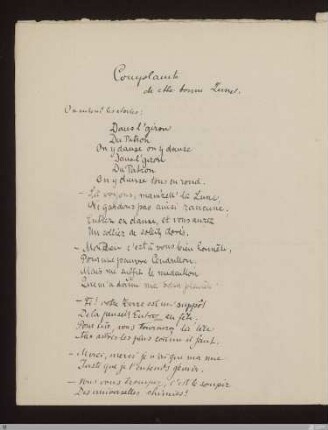 Complainte
de cette bonne Lune.
On entend les étoiles:
Dans l'giron
Du Patron
On y danse on y danse
Dans l'giron
Du Patron
On y danse tous en rond.
– Là voyons, mam'zell' la Lune,
Ne gardons pas ainsi rancune;
Entrez en danse, et vous aurez
Un collier de soleils dorés.
– Mon Dieu c'est à vous bien honnête,
Pour une pauvre Cendrillon
Mais me suffit le médaillon
Que m'a donné ma sœur planète
– Fi! votre Terre est un suppôt
De la pensée! Entrez en fête.
Pour sûr, vous tournerez la tête
Aux astres les plus comme il faut.
– Merci, merci je n'ai que ma mie
Juste que je l'entends gémir.
– Vous vous trompez, c'est le soupir
Des universelles chimies!